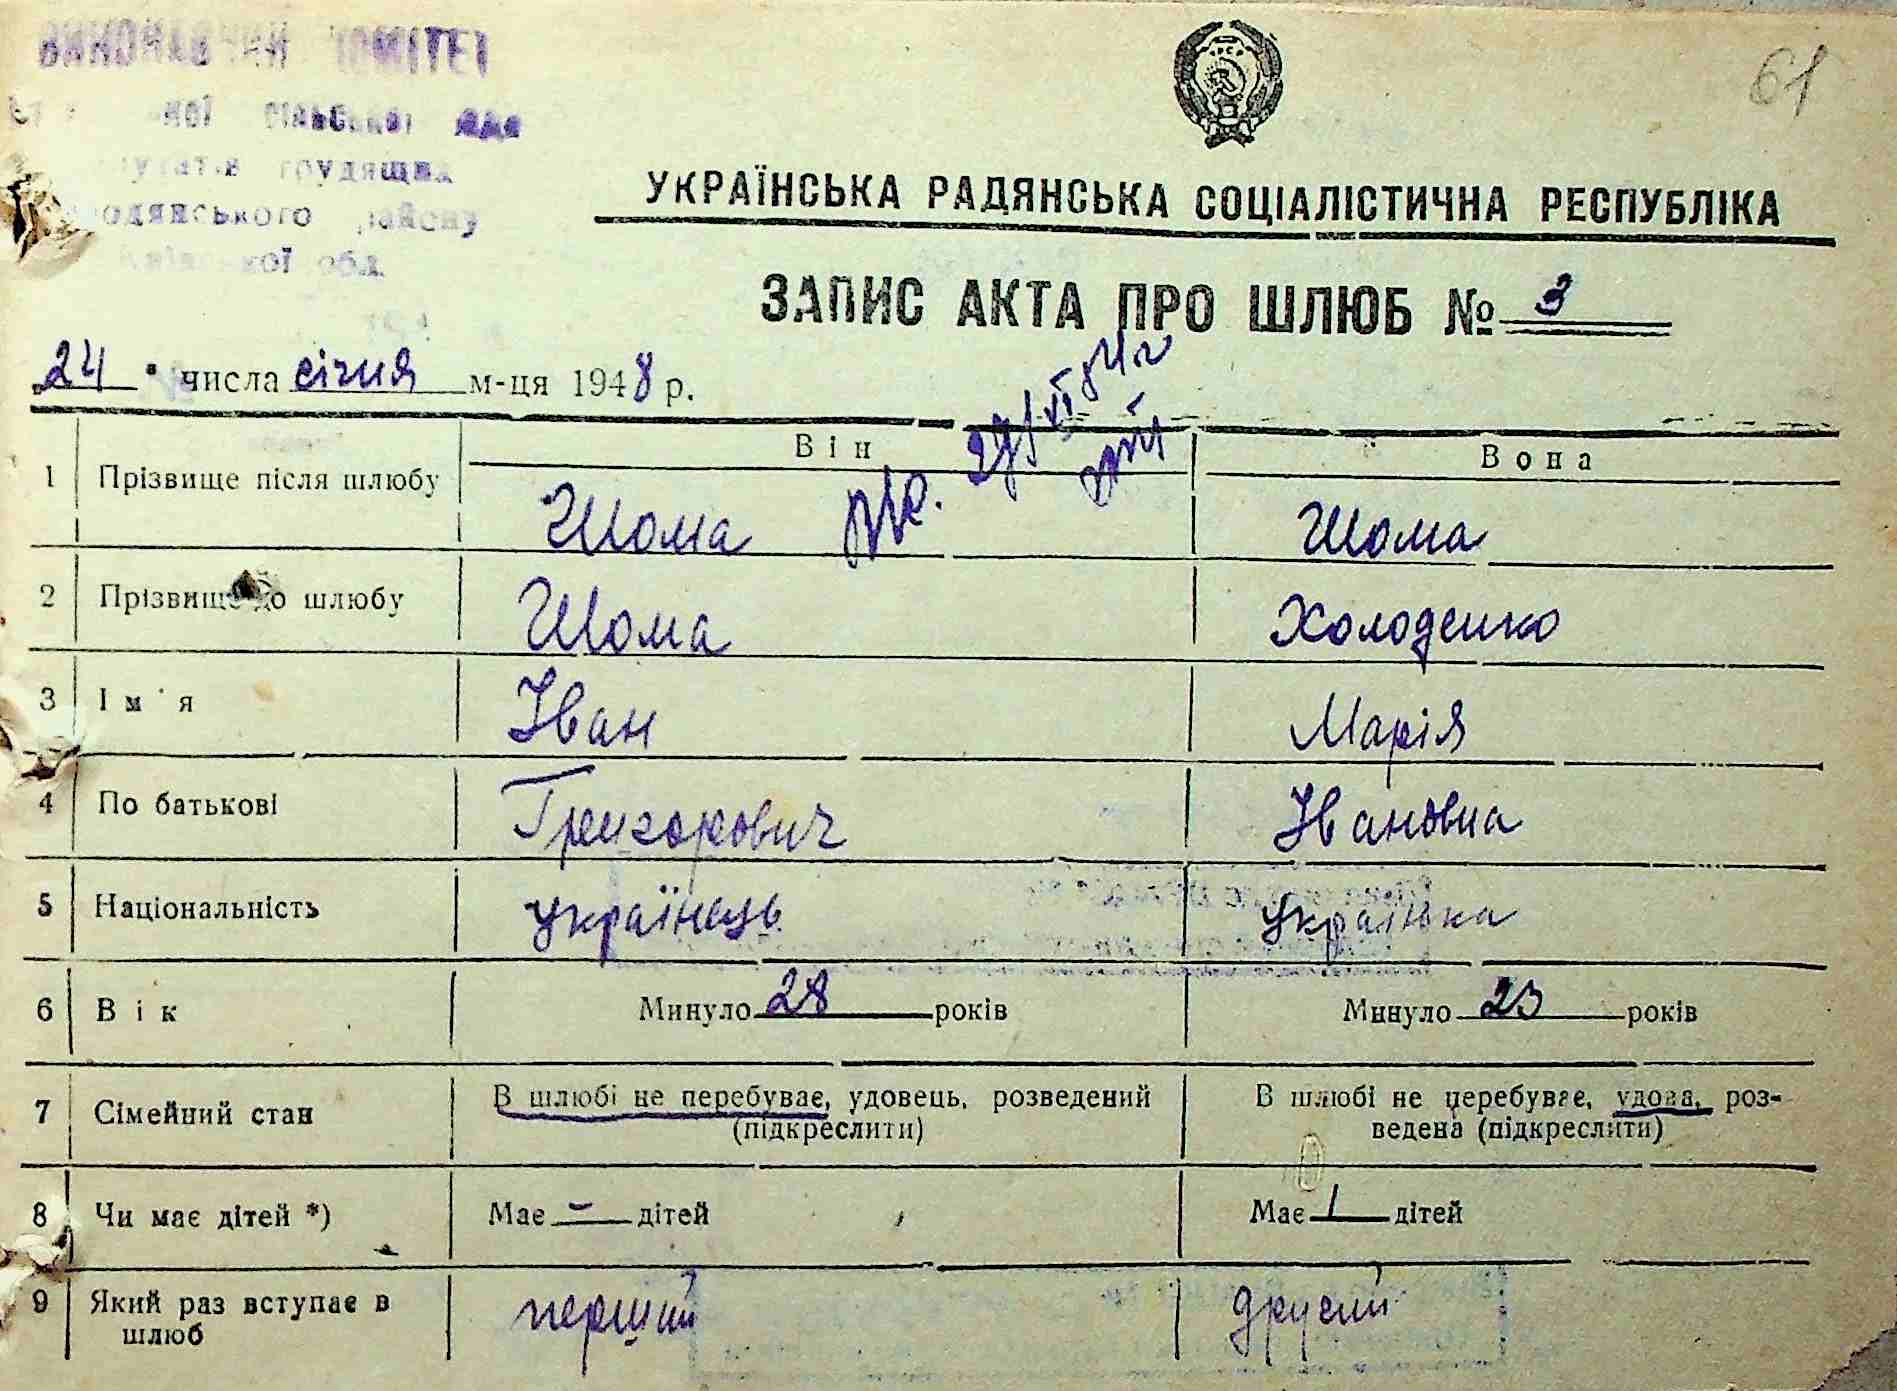 61
КОМІТЕТ
сільської
трудящих
району
обл.
УКРАЇНСЬКА РАДЯНСЬКА СОЦІАЛІСТИЧНА РЕСПУБЛІКА
ЗАПИС АКТА ПРО ШЛЮБ № 3
24 " числа січня м-ця 1948 р.
Він Вона
1 Прізвище після шлюбу Шома Шома
2 Прізвище до шлюбу Шома Холоденко
3 Ім'я Іван Марія
4 По батькові Григорович Івановна
5 Національність українець українка
6 Вік Минуло 28 років Минуло 23 років
7 Сімейний стан В шлюбі не перебуває, удовець, розведений В шлюбі не перебуває, удова, роз-
(підкреслити) ведена (підкреслити)
8 Чи має дітей *) Має – дітей Має 1 дітей
9 Який раз вступає в перший другий
шлюб